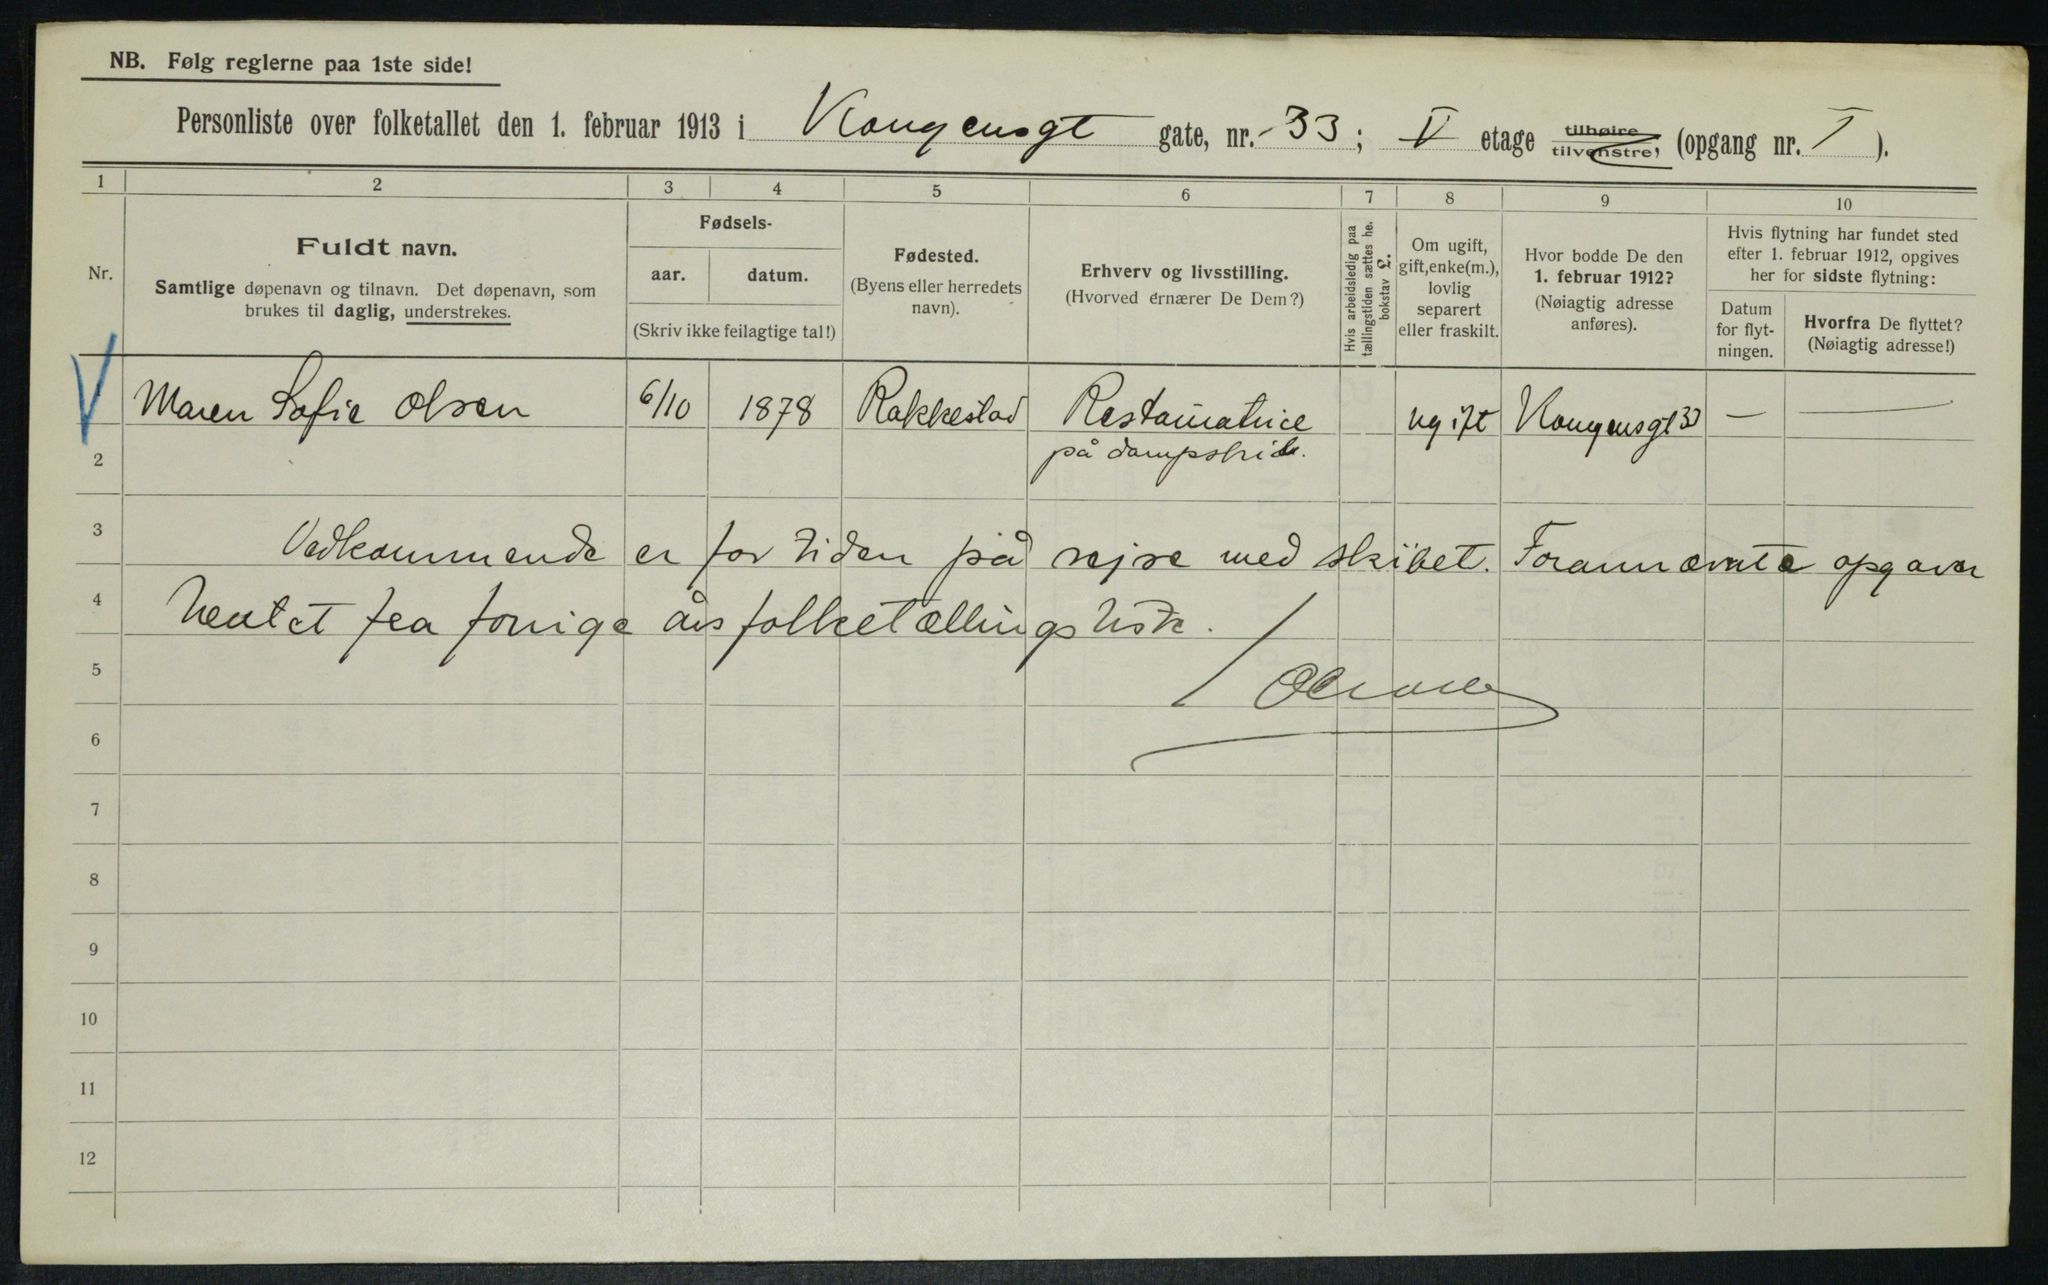 NB. Følg reglerne paa 1ste side!
Personliste over folketallet den 1. februar 1913 i Kongensgt gate, nr. 33; V etage tilhøire tilvenstre, (opgang nr. I ).
1 2 3 4 5 6 7 8 9 10
Nr.
Fuldt navn.
Samtlige døpenavn og tilnavn. Det døpenavn, som
brukes til daglig, understrekes.
Fødsels-
aar. datum.
(Skriv ikke feilagtige tal!)
Fødested.
(Byens eller herredets
navn).
Erhverv og livsstilling.
(Hvorved ernærer De Dem?)
Hvis arbeidsledig paa
tællingstiden sættes he.
bokstav L.
Om ugift,
gift, enke(m.),
lovlig
separert
eller fraskilt.
Hvor bodde De den
1. februar 1912?
(Nøiagtig adresse
anføres).
Hvis flytning har fundet sted
efter 1. februar 1912, opgives
her for sidste flytning:
Datum
for flyt-
ningen.
Hvorfra De flyttet?
(Nøiagtig adresse!)
Maren Sofie Olsen 6/10 1878 Rakkestad Restauratrice ugift Kongensgt 33 — —
2 på dampskib.
3 Vedkommende er for tiden på rejse med skibet. Forannævnte opgaver
4 hentet fra forrige års folketællingsliste.
5
6
7
8
9
10
11
12